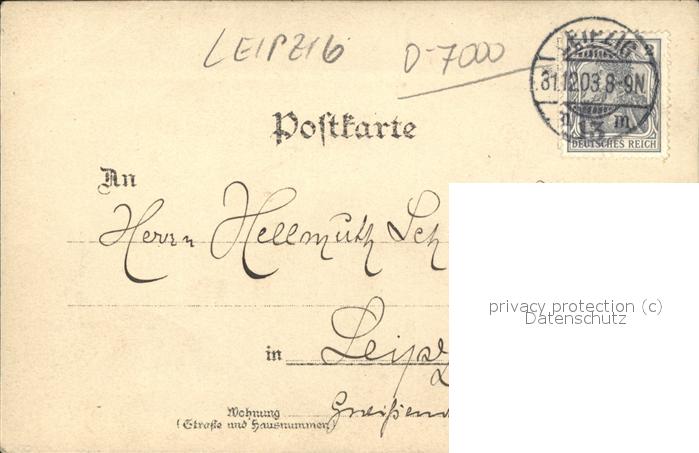 LEIPZIG D-7000
LEIPZIG
2
31.12.03. 8-9N.
13 m
DEUTSCHES REICH
Postkarte
An
Herrn Hellmuth Sch
privacy protection (c)
Datenschutz
in Leipz
Wohnung
(Straße und Hausnummer)